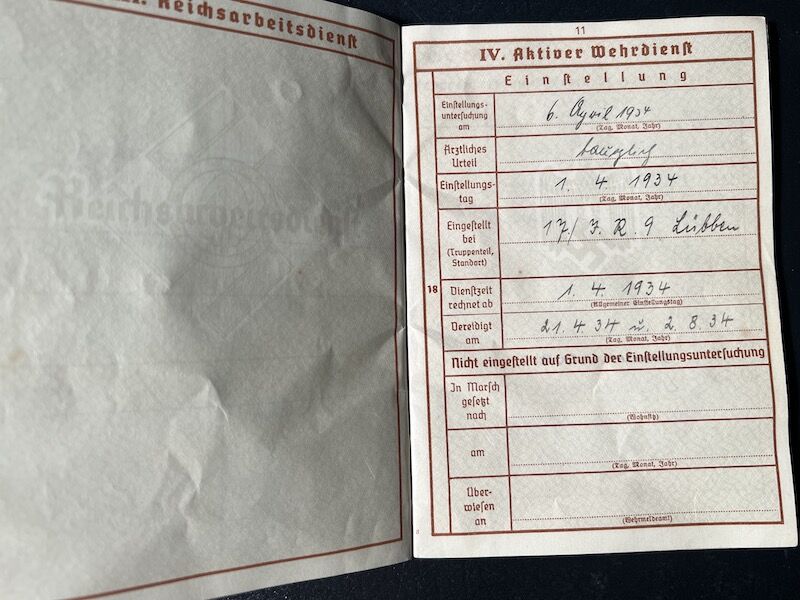 Reichsarbeitsdienst
11
IV. Aktiver Wehrdienst
Einstellung
Einstellungs-
untersuchung
am
6. April 1934
(Tag, Monat, Jahr)
Ärztliches
Urteil
tauglich
Einstellungs-
tag
1. 4 1934
(Tag, Monat, Jahr)
Eingestellt
bei
(Truppenteil,
Standort)
17/ I. R. 9 Lübben
18
Dienstzeit
rechnet ab
1 4. 1934
(Allgemeiner Einstellungstag)
Vereidigt
am
21. 4. 34 u. 2. 8. 34
(Tag, Monat, Jahr)
Nicht eingestellt auf Grund der Einstellungsuntersuchung
In Marsch
gesetzt
nach
(Wohnsitz)
am
(Tag, Monat, Jahr)
Über-
wiesen
an
(Wehrmeldeamt)